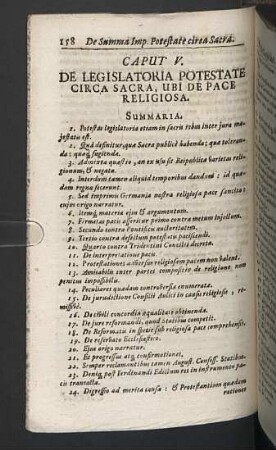 158 De Summa Imp. Potestate circa Sacra.
CAPUT V.
DE LEGISLATORIA POTESTATE
CIRCA SACRA, UBI DE PACE
RELIGIOSA.
SUMMARIA.
1. Potestas legislatoria etiam in sacris rebus inter jura ma-
jestatis est.
2. Quâ definitur, quæ Sacra publicè habenda; quæ toleran-
da: quæq; fugienda.
3. Admista quæstio, an ex usu sit Reipublicæ varietas reli-
gionum, & negata.
4. Interdum tamen aliquid temporibus dandum: id qua-
dam regna fecerunt.
5. Sed imprimis Germania nostra religiosa pace sancita:
ejus origo narratur.
6. Item materia ejus & argumentum.
7. Firmitas pacis asseritur primo contra metum injustum.
8. Secundo contra Pontificis auctoritatem.
9. Tertio contra defectum potestatis paciscendi.
10. Quarto contra Tridentini Concilii decreta.
11. De interpretatione pacis.
12. Protestationes adversus religiosam pacem non valent.
13. Amicabilis inter partes compositio de religione non
penitus impossibilis.
14. Peculiares quædam controversiæ enumeratæ.
15. De jurisdictione Consilii Aulici in causis religiosis, re-
missivè.
16. De civili concordia æqualitate obtinenda.
17. De jure reformandi, quod Statibus competit.
18. De Reformatis in foedere sub religiosa pace comprehensis.
19. De reservato Ecclesiastico.
20. Ejus origo narratur.
21. Et progressus atq; confirmationes.
22. Semper reclamantibus tamen August. Confess. Statibus.
23. Denique post Ferdinandi Edictum res in instrumento pa-
cis transacta.
24. Digressio ad merita causæ: & Protestantium quædam
rationes